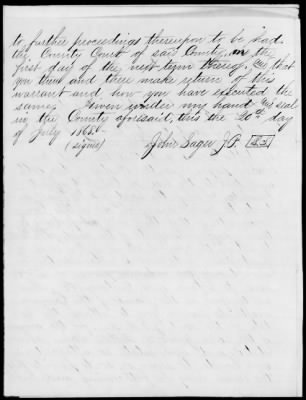 to further proceedings thereupon to be had
the County Court of said County, on the
first day of the next term thereof, And that
you then and there make return of this
warrant and how you have executed the
same. Given under my hand And seal
in the County aforesaid, this the 20th day
of July 1865.
(signed) John Sager J.P. L.S.